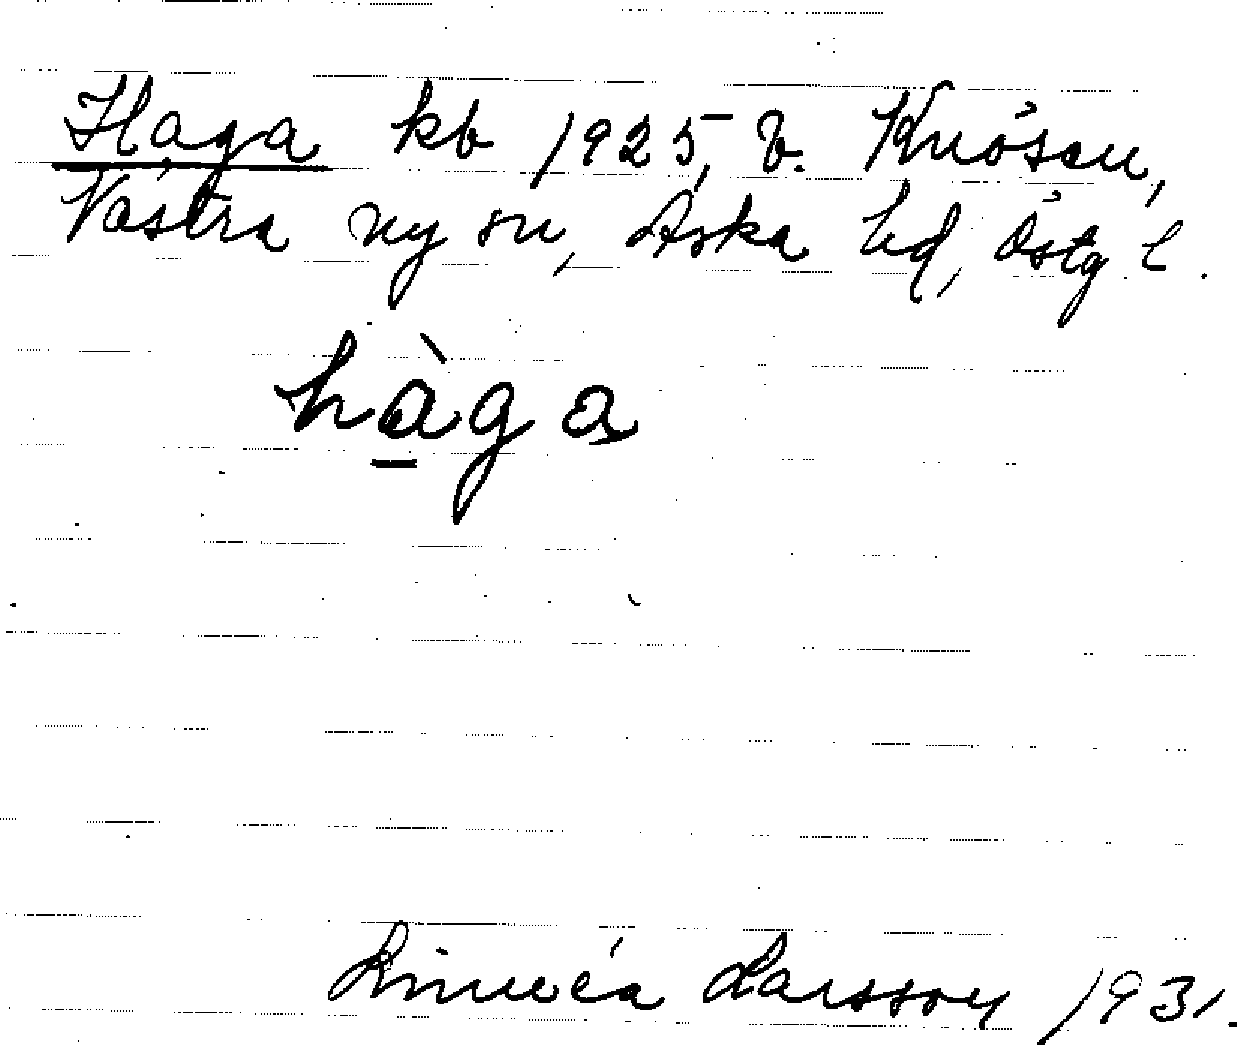 Haga kb 1925, V. Knösen,
Västra Ny sn, Aska hd, Östg l.
hàga
Linnéa Larsson 1931.